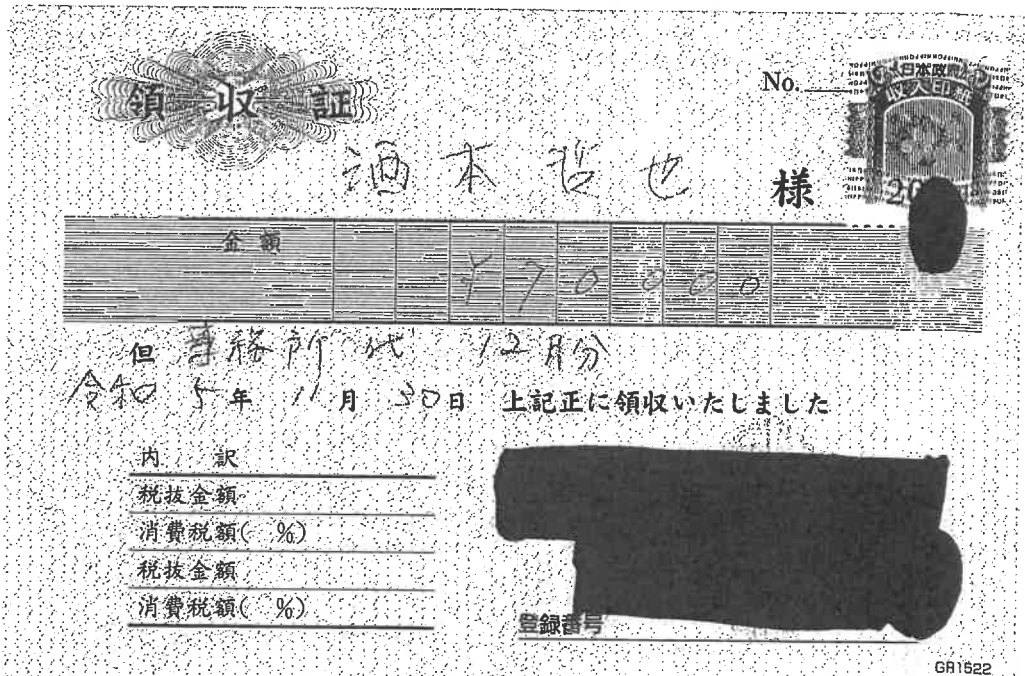 領収証
No.
日本政府
収入印紙
酒本哲也 様
金額 ¥70000
但 事務所代 12月分
令和5年11月30日 上記正に領収いたしました
内 訳
税抜金額
消費税額( %)
税抜金額
消費税額( %)
登録番号
GR1522